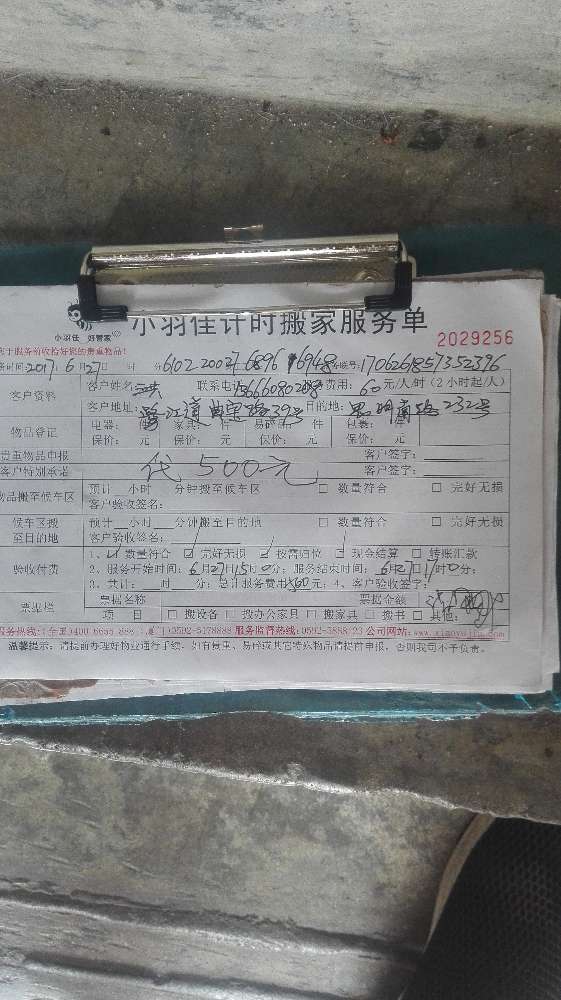 小羽佳 好管家
小羽佳计时搬家服务单
2029256
于服务前收捡好您的贵重物品!
务时间2017年6月27日 时 分 6102 2003 6896 16948 联号:1706261857352396
客户资料 客户姓名: 洪 联系电话 费用: 60元/人/时 (2小时起/人)
客户地址: 鹭江道 39号 目的地: 思明南路232号
物品登记 电器: 件 家具: 件 易碎品: 件 包装: 件
保价: 元 保价: 元 保价: 元 保价: 元
贵重物品申报 客户签字:
客户特别承诺 代500元 客户签字:
物品搬至候车区 预计 小时 分钟搬至候车区 □ 数量符合 □ 完好无损
客户验收签名:
候车区搬至目的地 预计 小时 分钟搬至目的地 □ 数量符合 □ 完好无损
客户验收签名:
验收付费 1、☑ 数量符合 ☑ 完好无损 ☑ 按需归位 ☑ 现金结算 □ 转账汇款
2、服务开始时间: 6月27日15时0分; 服务结束时间: 6月27日17时0分;
3、共计: 时 分; 总计服务费用 元; 4、客户验收签字:
票据栏 票据名称 票据金额
项 目 □ 搬设备 □ 搬办公家具 □ 搬家具 □ 搬书 □ 其他:
服务热线: 400 6655 888 0592-5178888 服务监督热线: 0592-5888123 公司网站: www.xiaoyujia.com
温馨提示: 请提前办理好物业通行手续, 如有贵重、易碎或其它特殊物品请提前申报, 否则我司不予负责。